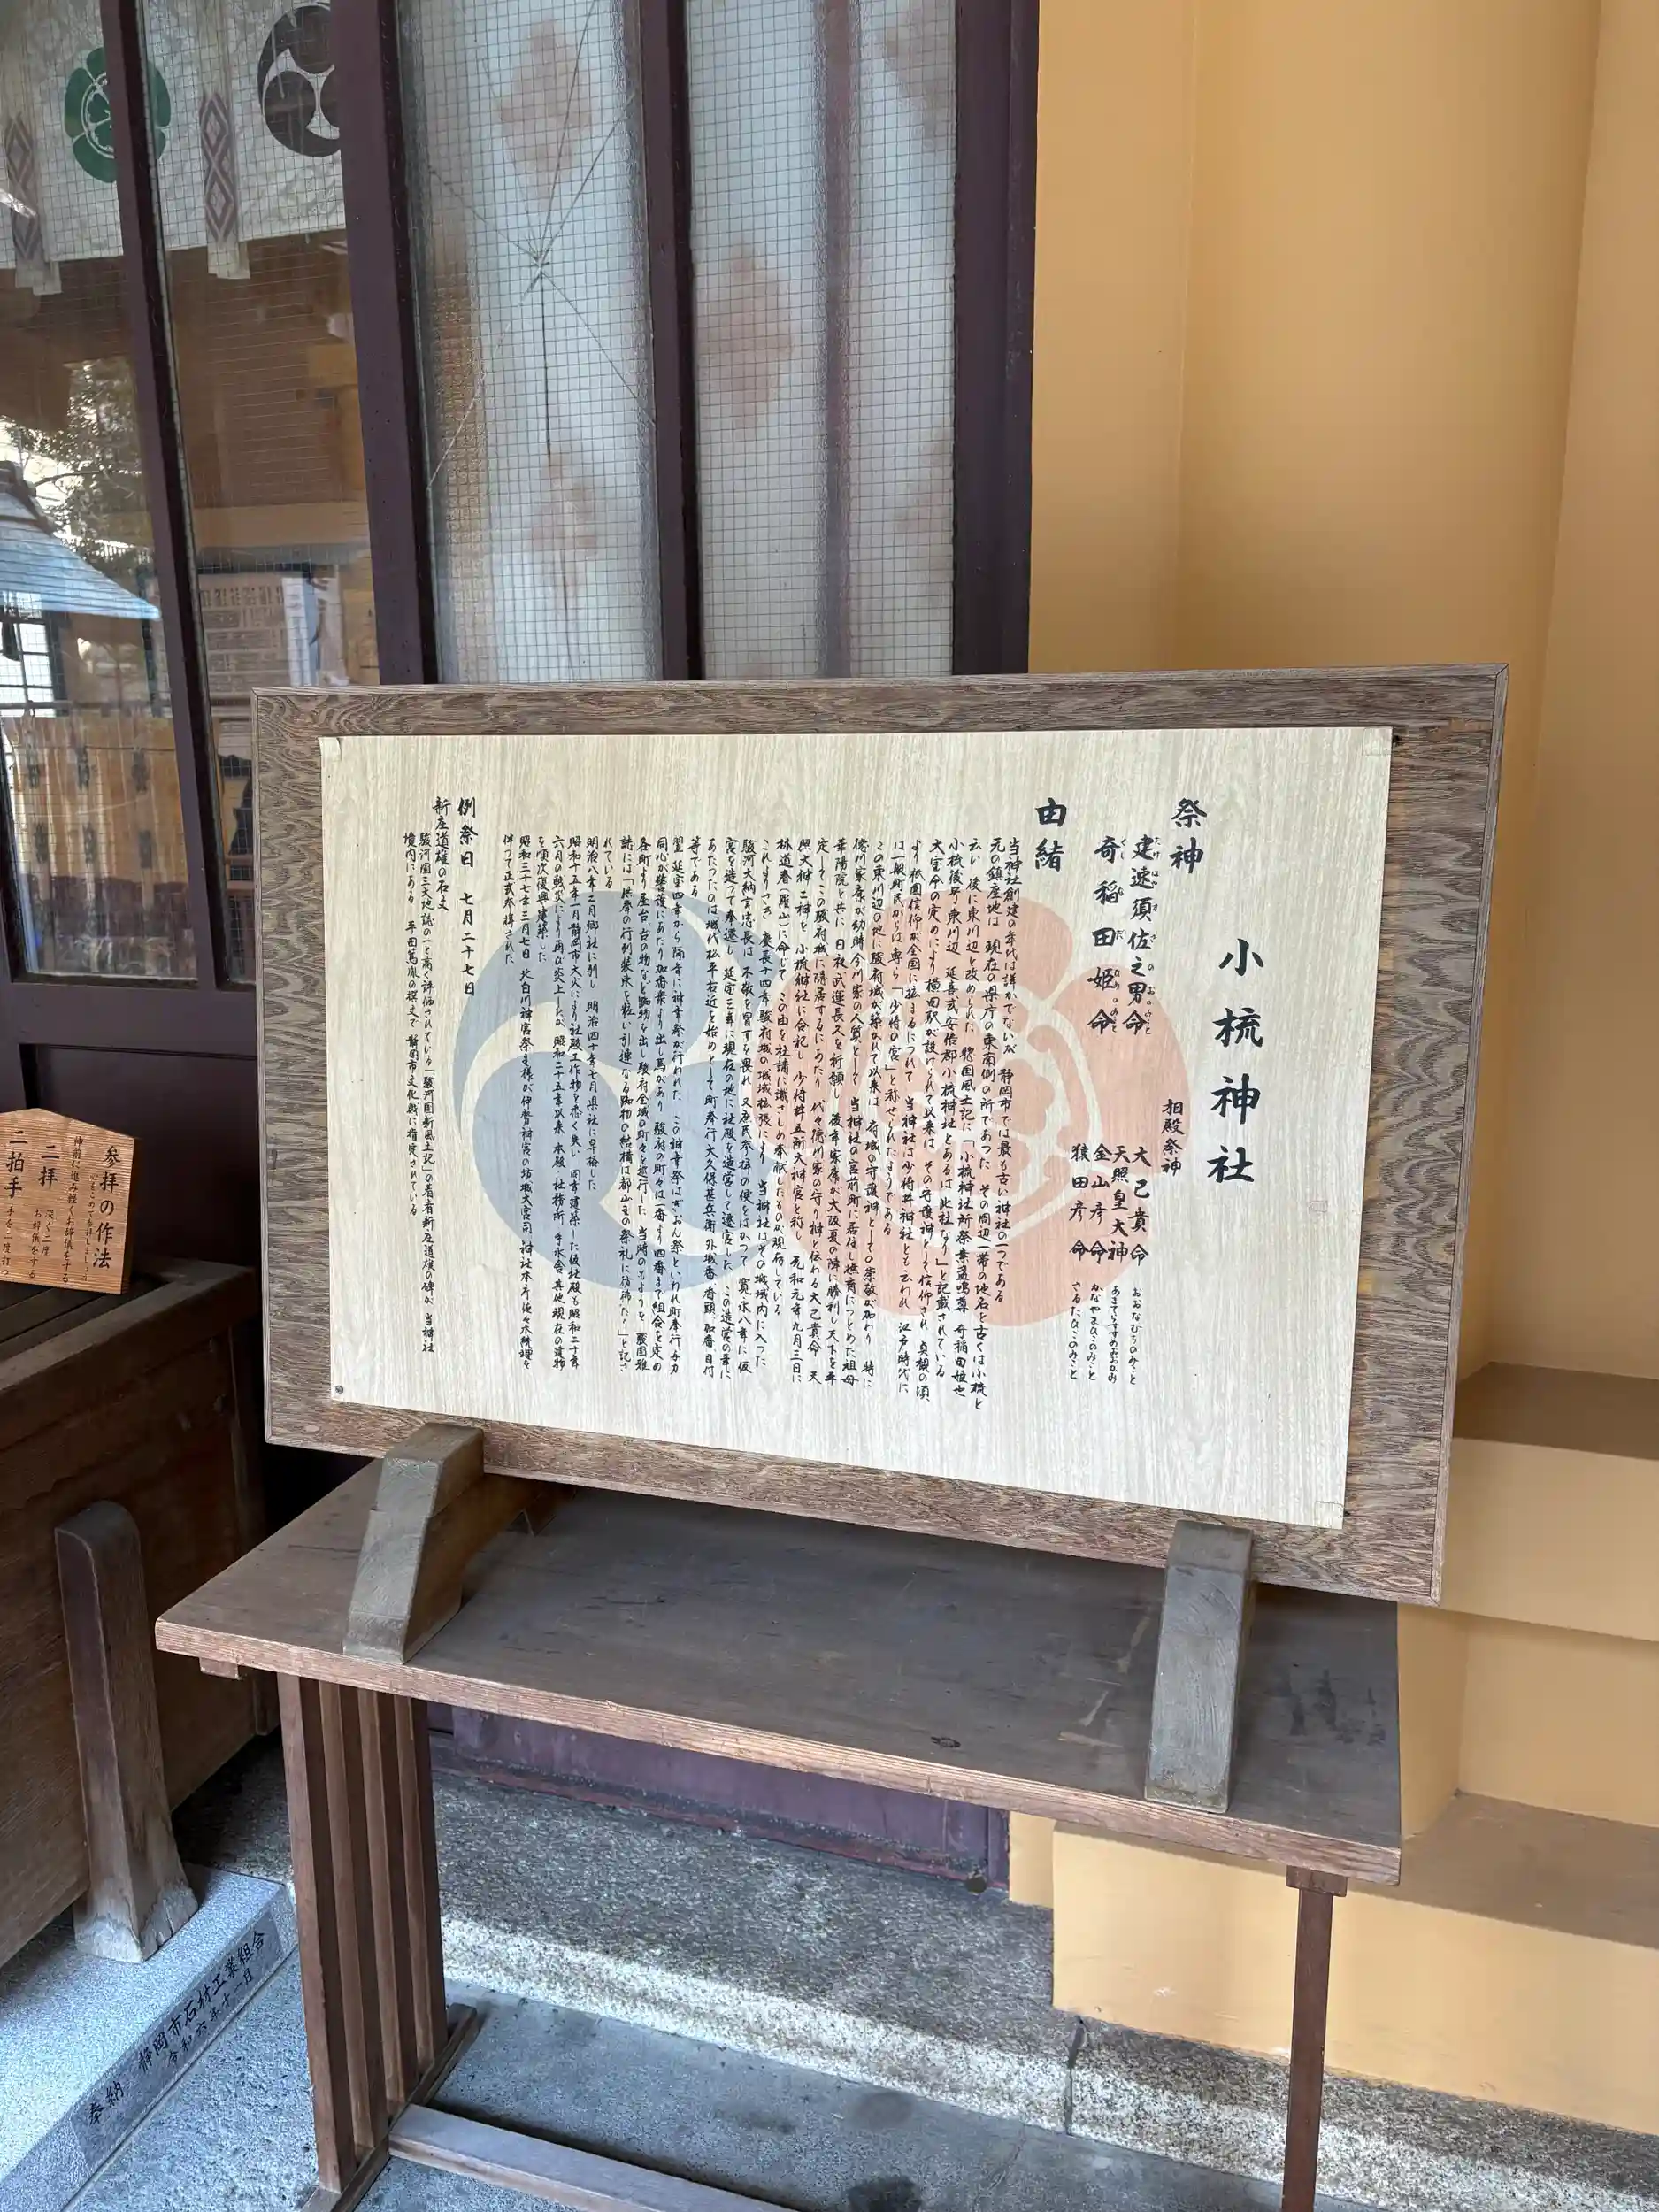 小梳神社
祭神
建速須佐之男命
たけはやすさのおのみこと
奇稲田姫命
くしいなだひめのみこと
相殿祭神
大己貴命 おおなむちのみこと
天照皇大神 あまてらすすめおおかみ
金山彦命 かなやまひこのみこと
猿田彦命 さるたひこのみこと
由緒
当神社創建の年代は詳かでないが 静岡市では最も古い神社の一つである
元の鎮座地は 現在の県庁の東南側の所であった その周辺一帯の地名を古くは小梳と
云い 後に東川辺を改められた 惣国風土記に「小梳神社所祭素盞嗚尊 奇稲田姫也
小梳後号東川辺 延喜式安倍郡小梳神社とあるは此社なり」と記載されている
大宝令の定めにより横田駅が設けられて以来は その守護神として信仰され 貞観の頃
より祇園信仰が全国に拡まるにつれて 当神社は少将井神社とも云われ 江戸時代に
は一般町民からは専ら「少将の宮」と称せられたようである
この東川辺の地に駿府城が築かれて以来は 府城の守護神としての崇敬が加わり 特に
徳川家康が幼時今川家の人質として 当神社の宮前町に居住し撫育につとめた祖母
華陽院と共に 日夜武運長久を祈願し 後年家康が大阪夏の陣に勝利し天下を平
定してこの駿府城に隠居するにあたり 代々徳川家の守り神と伝わる大己貴命 天
照大神 二神を小梳神社に合祀し 少将井五所大神宮と称し 元和元年九月三日に
林道春(羅山)に命じて この由を社請に識さしめ奉献したものが現存している
これよりさき 慶長十四年駿府城の城域拡張により 当神社はその城域内に入った
駿河大納言忠長は 不敬を冒すを畏れ 又庶民参拝の便をはかって 寛永八年に仮
宮を造って奉遷し 延宝三年に現在の地に社殿を造営して遷宮した この造営の事に
あたったのは城代松平右近を始めとして町奉行大久保甚兵衛外城番 番頭 加番 目付
等である
翌延宝四年から隔年に神幸祭が行われた この神幸祭はぎおん祭といわれ町奉行与力
同心が警護にあたり加番衆より出し馬があり 駿府の町々は一番より四番まで組合を定め
各町より屋台 台の物など踟物を出し駿府全域の町々を巡行した 当時のもようを 駿国雅
誌には「供奉の行列装束を粧い引連なる踟物の結構は都山王の祭礼に彷彿たり」と記さ
れている
明治八年二月郷社に列し 明治四十年七月県社に昇格した
昭和十五年一月静岡市大火により社殿工作物を悉く失い 同年建築した仮社殿も昭和二十年
六月の戦災により再び炎上したが 昭和二十五年以来 本殿 社務所 手水舎 其他現在の建物
を順次復興建築した
昭和三十七年三月七日 北白川神宮祭主様が伊勢神宮の坊城大宮司 神社本庁佐々木統理を
伴って正式参拝された
例祭日 七月二十七日
新庄道雄の石文
駿河国三大地誌の一と高く評価されている「駿河国新風土記」の著者新庄道雄の碑が 当神社
境内にある 平田篤胤の撰文で 静岡市文化財に指定されている
参拝の作法
心をこめてお参りしましょう
神前に進み軽くお辞儀をする
二拝 深く二度お辞儀をする
二拍手 手を二度打つ
奉納 静岡市石材工業組合
令和六年十一月